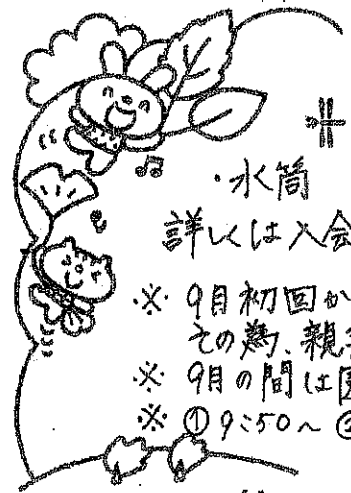 ・水筒
詳しくは入会
※ 9月初回か
その為、親
※ 9月の間は
※ ①9:50〜②